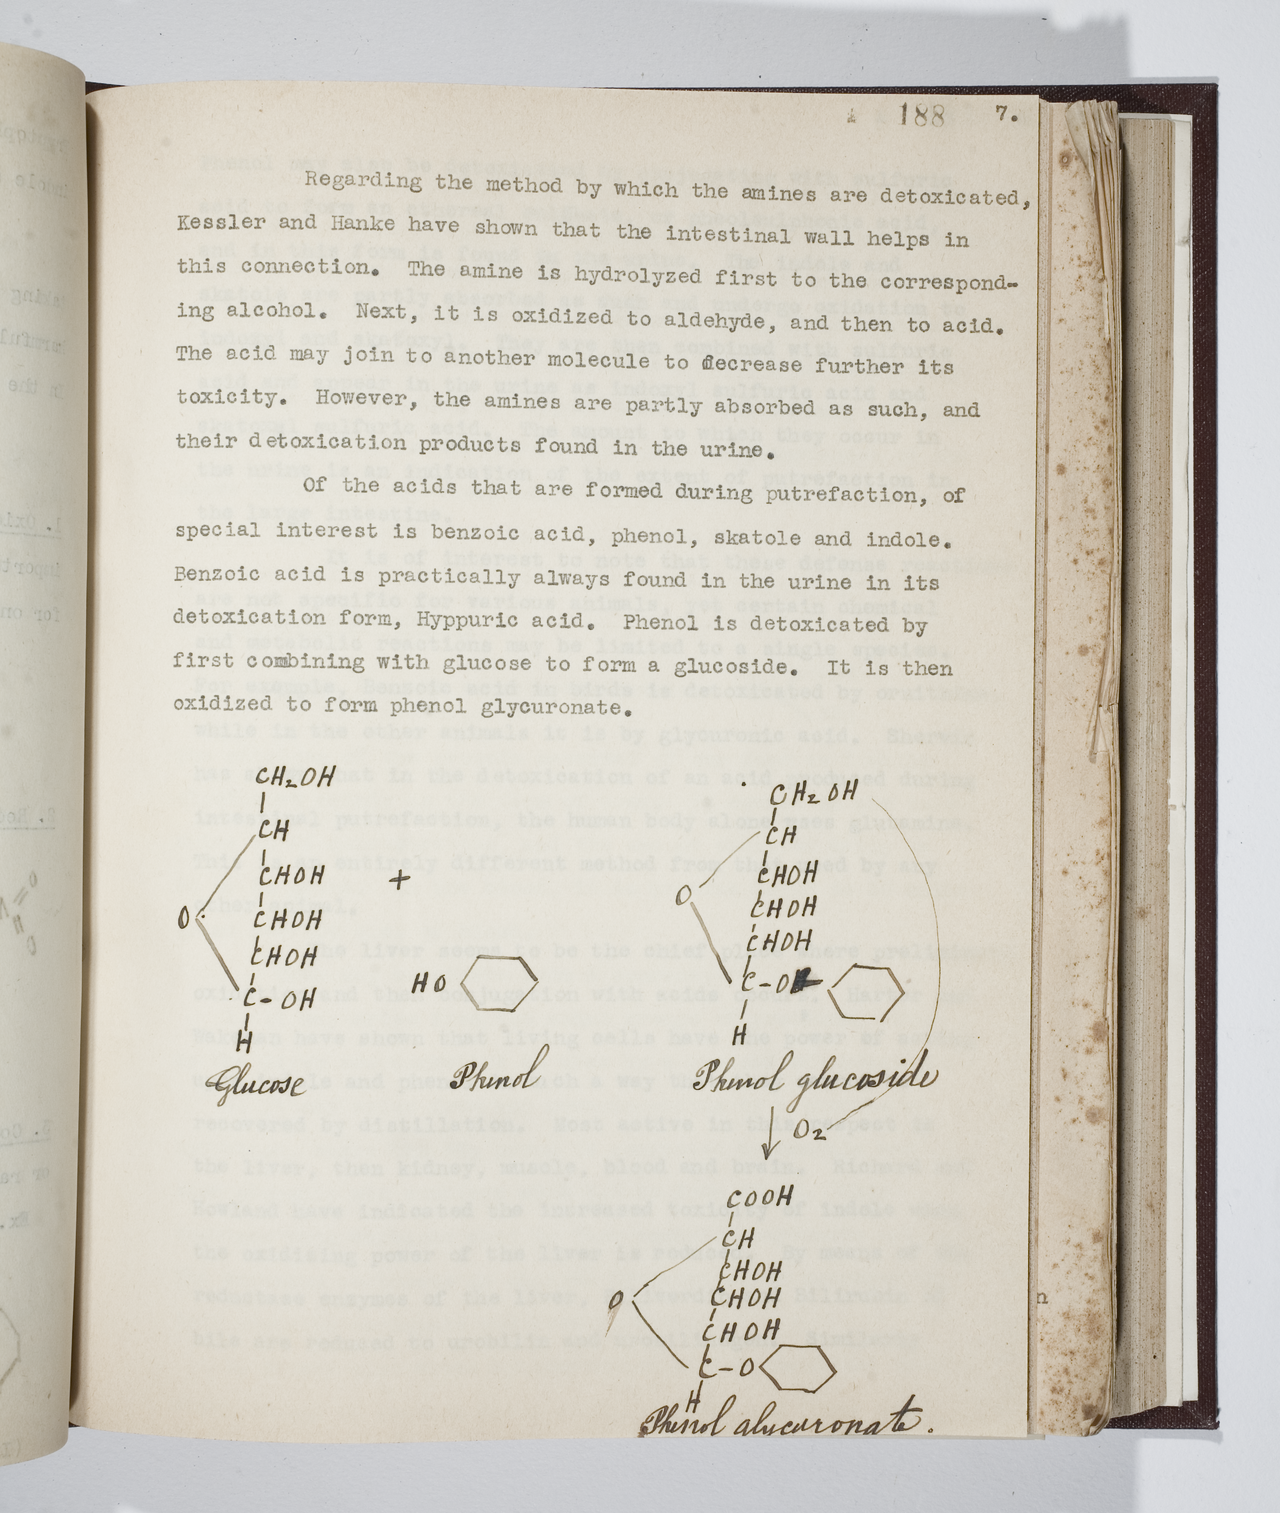 188 7.
Regarding the method by which the amines are detoxicated,
Kessler and Hanke have shown that the intestinal wall helps in
this connection. The amine is hydrolyzed first to the correspond-
ing alcohol. Next, it is oxidized to aldehyde, and then to acid.
The acid may join to another molecule to decrease further its
toxicity. However, the amines are partly absorbed as such, and
their detoxication products found in the urine.
Of the acids that are formed during putrefaction, of
special interest is benzoic acid, phenol, skatole and indole.
Benzoic acid is practically always found in the urine in its
detoxication form, Hyppuric acid. Phenol is detoxicated by
first combining with glucose to form a glucoside. It is then
oxidized to form phenol glycuronate.
CH2OH
CH
CHOH
O
CHOH
CHOH
C-OH
H
Glucose
+
HO
Phenol
CH2OH
CH
CHOH
O
CHOH
CHOH
C-O
H
Phenol glucoside
O2
COOH
CH
CHOH
O
CHOH
CHOH
C-O
H
Phenol glucuronate.